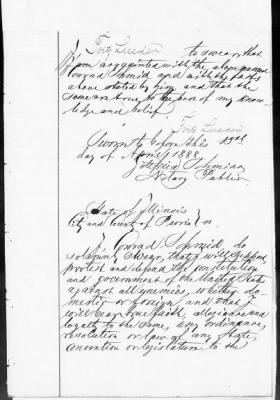 Fritz Lueder to swear, that
I am acquainted with the above named
Conrad Schmid and with the facts
above stated by him and that the
same are true to the best of my know-
ledge and belief
Fritz Lueder
Sworn to before this 13th
day of April 1888.
Notary Public
State of Illinois
City and County of Peoria } ss.
I Conrad Schmid, do
solemnly swear, that I will support
protect and defend the constitution
and government of the United States
against all enemies, whether do-
mestic or foreign and that I
will bear true faith, allegiance and
loyalty to the same, any ordinance,
resolution or law of any State,
convention or legislature to the